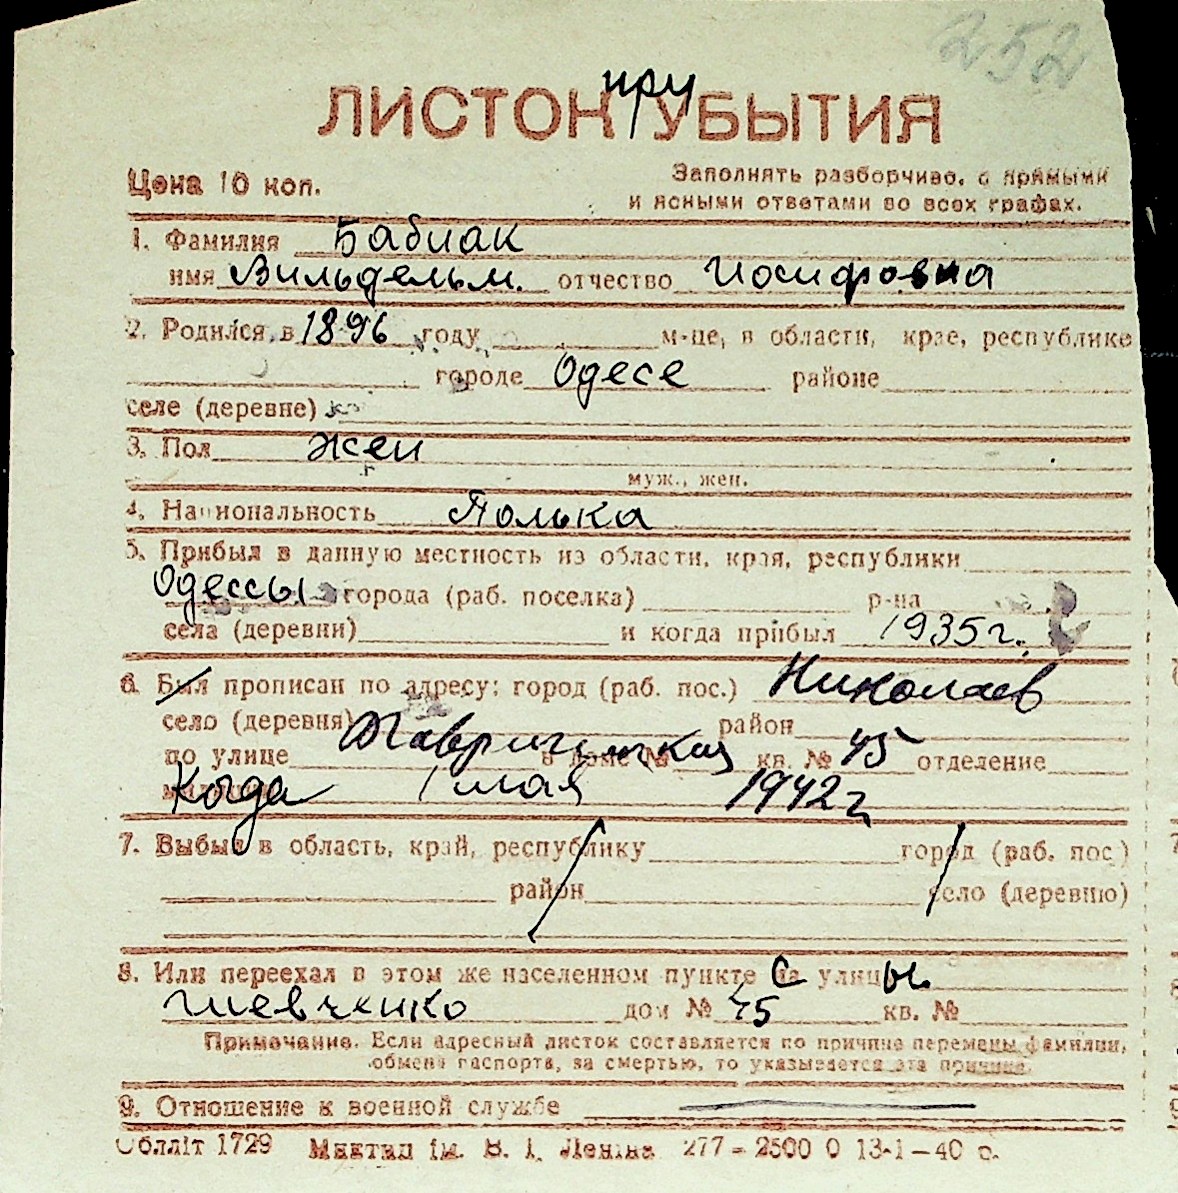 252
ЛИСТОК при УБЫТИЯ
Цена 10 коп.
Заполнять разборчиво, с прямыми
и ясными ответами во всех графах.
1. Фамилия Бабиак
имя Вильдельм. отчество Иосифовна
2. Родился в 1896 году м-це, в области, крае, республике
городе Одесе районе
селе (деревне)
3. Пол жен
муж., жен.
4. Национальность Полька
5. Прибыл в данную местность из области, края, республики
Одессы города (раб. поселка) р-на
села (деревни) и когда прибыл 1935 г.
6. Был прописан по адресу: город (раб. пос.) Николаев
село (деревня) район
по улице в доме № кв. № 45 отделение
Когда 1 мая 1942 г
7. Выбыл в область, край, республику город (раб. пос.)
район село (деревню)
8. Или переехал в этом же населенном пункте с улицы
Шевченко дом № 45 кв. №
Примечание. Если адресный листок составляется по причине перемены фамилии,
обмена паспорта, за смертью, то указывается эта причина.
9. Отношение к военной службе
Облліт 1729 ім. В. І. Леніна 277 – 2500 0 13-1–40 р.